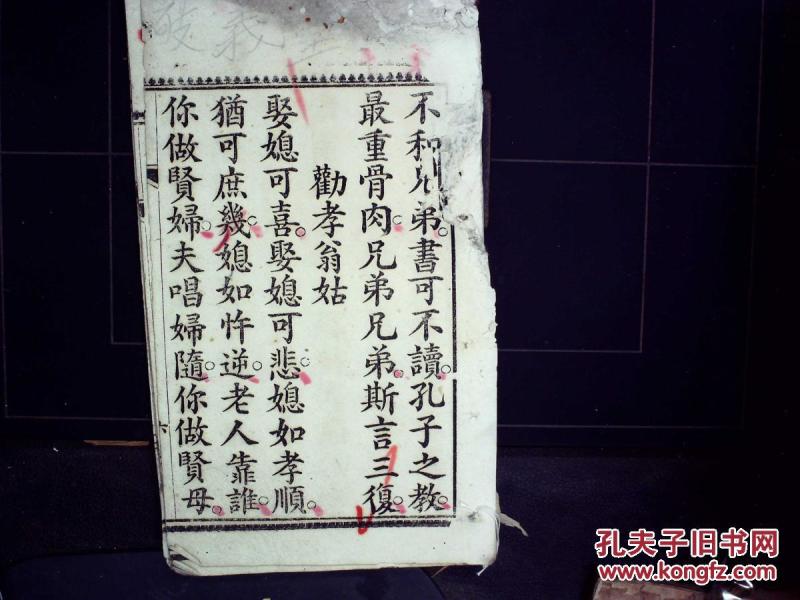 不和兄弟書可不讀。孔子之教。
最重骨肉。兄弟兄弟。斯言三復。
勸孝翁姑
娶媳可喜。娶媳可悲。媳如孝順。
猶可庶幾。媳如忤逆。老人靠誰。
你做賢婦。夫唱婦隨。你做賢母。
六
孔夫子旧书网
www.kongfz.com